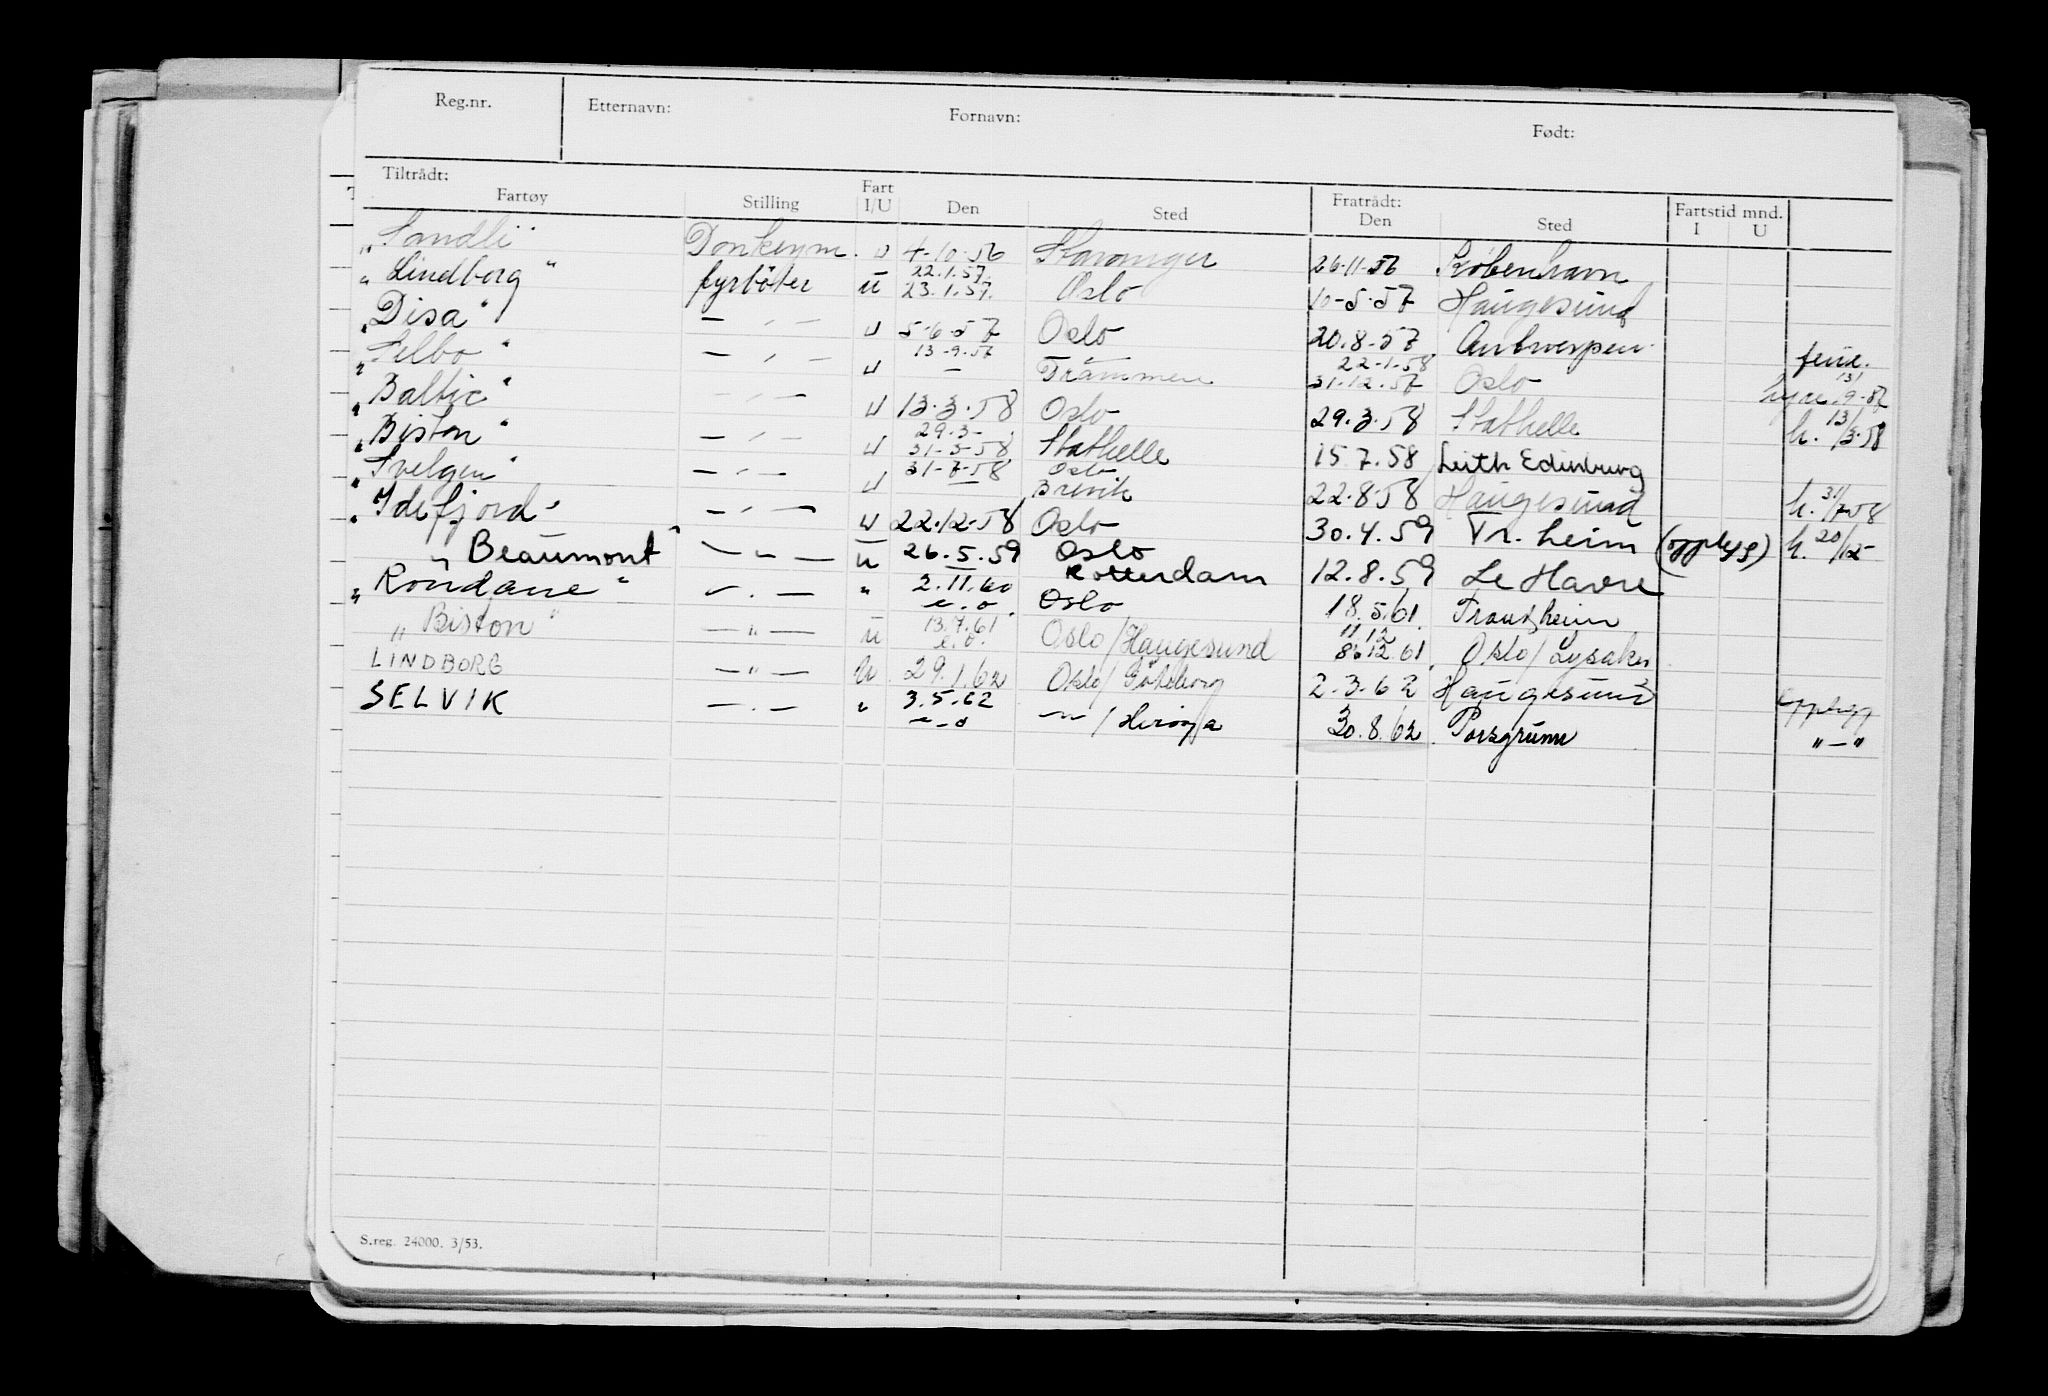 Reg.nr. Etternavn: Fornavn: Født:
Tiltrådt: Fratrådt: Fartstid mnd.
Fartøy Stilling Fart I/U Den Sted Den Sted I U
"Sandli" Donkeym. U 4-10-56 Stavanger 26-11-56 København
"Lindborg" fyrbøter U 22.1.57. 23.1.57. Oslo 10-5-57 Haugesund
"Disa" — " — U 5-6-57 Oslo 20.8.57 Antwerpen ferie.
"Selbo" — " — U 13-9-57 — 22-1-58 31.12.57 Oslo hyre 13/9-57
"Baltic" — " — U 13.3.58 Oslo 29.3.58 Stathelle h. 13/3.58
"Biston" — " — U 29.3- 31-3-58 Stathelle 15.7.58 Leith Edinburg
"Svelgen" — " — U 31-7-58 — Oslo Brevik 22.8.58 Haugesund h. 31/7-58
"Idefjord" — " — U 22.12.58 Oslo 30.4.59 Tr.heim (opplegg) h. 20/12-
"Beaumont" — " — U 26.5.59 — Oslo Rotterdam 12.8.59 Le Havre
"Rondane" — " — " 2.11.60 e.o. Oslo 18.5.61. Trondheim
"Biston" — " — U 13.7.61 e.o. Oslo/Haugesund 11.12 8.12.61. Oslo/Lysaker
LINDBORG — " — U 29.1.62 Oslo/Göteborg 2.3.62 Haugesund opplegg
SELVIK — " — " 3.5.62 e-o — " — / Herøya 30.8.62. Porsgrunn " — "
S.reg. 24000. 3/53.